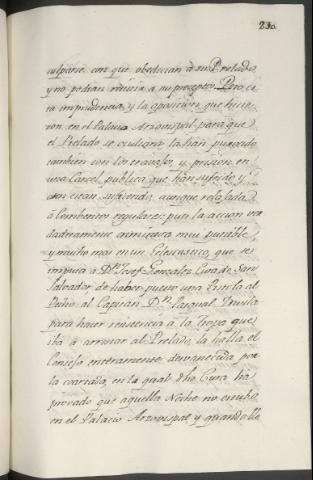 230.
culparse con que obedecian a su Prelado,
y no podian resistir a su precepto. Pero es-
ta imprudencia, y la oposicion que hicie-
ron en el Palacio Arzobispal para que
el Prelado se ocultara la han purgado
tambien con los trabajos, y prision en
una Carcel publica que han sufrido y
aun estan sufriendo, aunque relajada
à Combentos regulares: pues la accion ver-
daderamente criminosa mui punible,
y mucho mas en un Eclesiastico, que se
imputa à Dn. Josef Gonzalez Cura de San
Salvador de haber puesto una Pistola al
Pecho al Capitan Dn. Pasqual
para hacer resistencia à la Tropa que
iba à arrestar al Prelado, la halla el
Consejo enteramente desvanecida por
la coartada, en la qual dho Cura ha
provado que aquella Noche no estubo
en el Palacio Arzobispal y quando lle